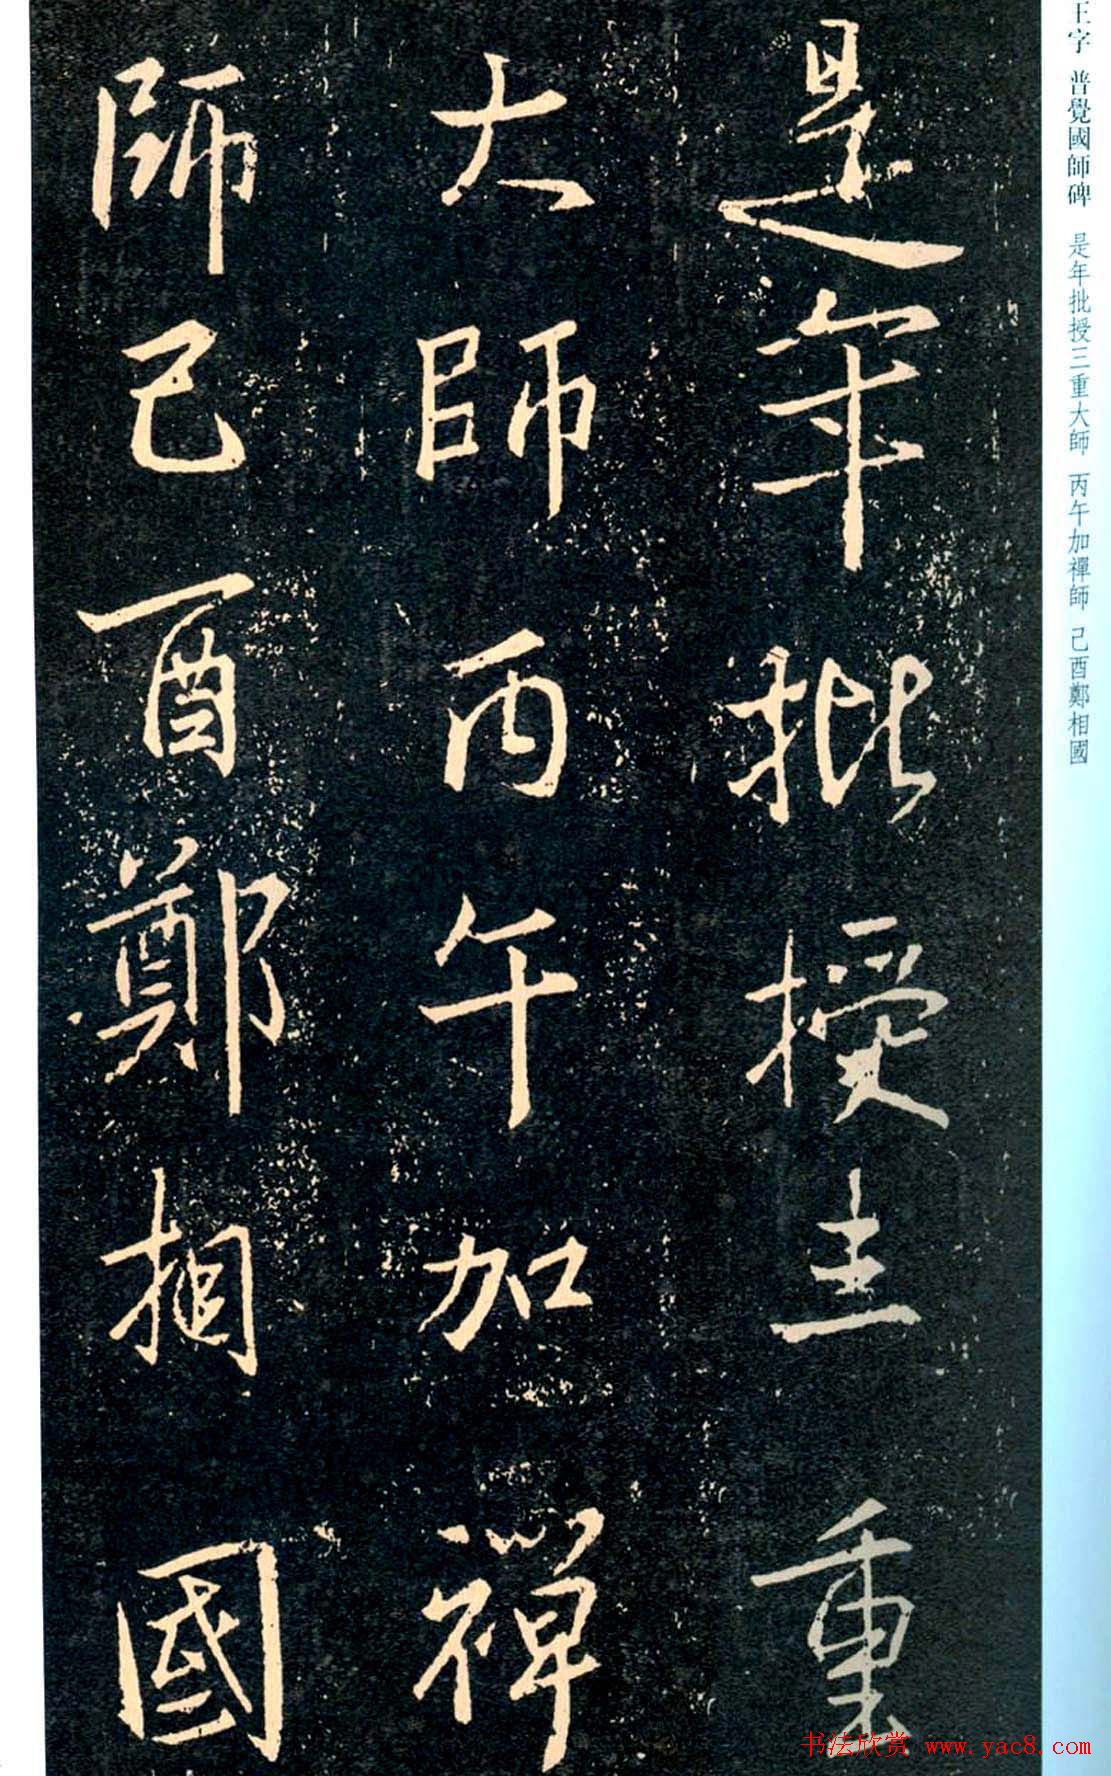 王字 普覺國師碑 是年批授三重大師 丙午加禪師 己酉鄭相國
是年批授三重
大師丙午加禪
師己酉鄭相國
书法欣赏 www.yac8.com